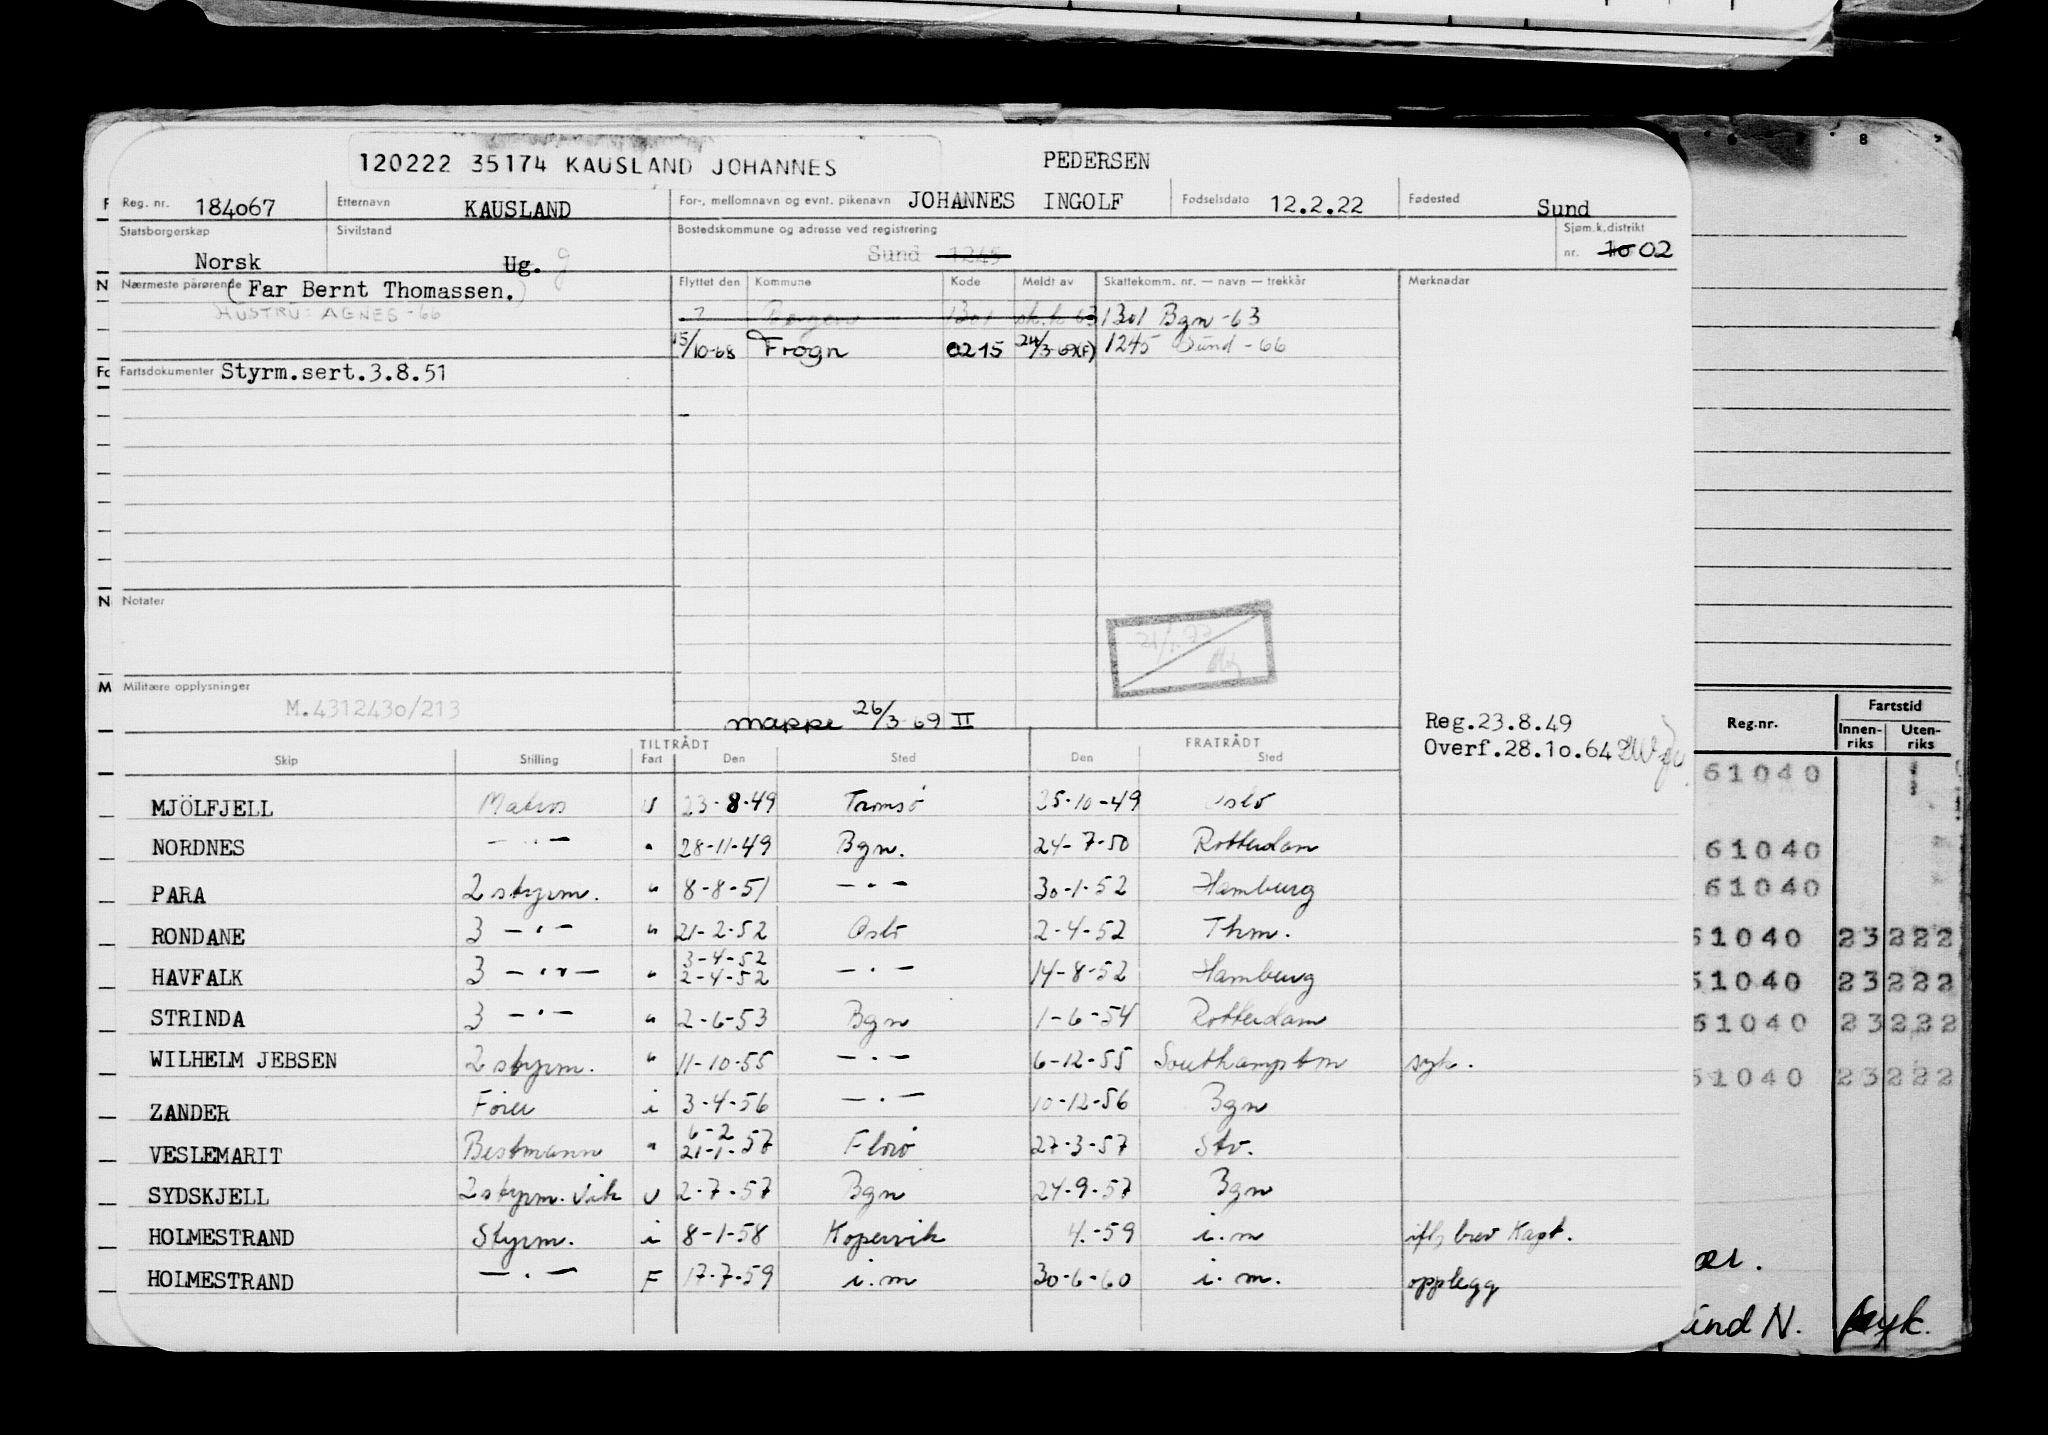 120222 35174 KAUSLAND JOHANNES PEDERSEN
Reg. nr. 184o67 Etternavn KAUSLAND For-, mellomnavn og evnt. pikenavn JOHANNES INGOLF Fødselsdato 12.2.22 Fødested Sund
Statsborgerskap Norsk Sivilstand Ug. g Bostedskommune og adresse ved registrering Sund 1245 Sjøm.k.distrikt nr. 1o 02
Nærmeste pårørende (Far Bernt Thomassen.) Flyttet den Kommune Kode Meldt av Skattekomm. nr. — navn — trekkår Merknader
HUSTRU: AGNES -66 ? Bergen 1301 sk.k 63 1301 Bgn -63
15/10-68 Frogn 0215 24/3-69(F) 1245 Sund -66
Fartsdokumenter Styrm.sert.3.8.51
Notater
Militære opplysninger
M.431243o/213
mappe 26/3-69 II
Reg.23.8.49
Overf.28.1o.64
TILTRÅDT FRATRÅDT
Skip Stilling Fart Den Sted Den Sted
MJÖLFJELL Matros U 23-8-49 Tromsö 25-10-49 Oslo
NORDNES — · — " 28-11-49 Bgn. 24-7-50 Rotterdam
PARA 2 styrm. " 8-8-51 — · — 30-1-52 Hamburg
RONDANE 3 — · — " 21-2-52 Oslo 2-4-52 Thm.
HAVFALK 3 — · — " 3-4-52 2-4-52 — · — 14-8-52 Hamburg
STRINDA 3 — · — " 2-6-53 Bgn 1-6-54 Rotterdam
WILHELM JEBSEN 2 styrm. " 11-10-55 — · — 6-12-55 Southampton syk.
ZANDER Förer i 3-4-56 — · — 10-12-56 Bgn
VESLEMARIT Bestmann " 6-2 21-1-57 Florö 27-3-57 Stv.
SYDSKJELL 2 styrm. vik U 2-7-57 Bgn 24-9-57 Bgn
HOLMESTRAND Styrm. i 8-1-58 Kopervik 4.-59 i.m ifl, brev Kapt.
HOLMESTRAND — · — F 17-7-59 i.m 30-6-60 i.m. opplegg
Reg.nr. Fartstid
Innen-riks Uten-riks
61040
61040
61040
51040 23222
51040 23222
61040 23222
51040 23222
N. syk.